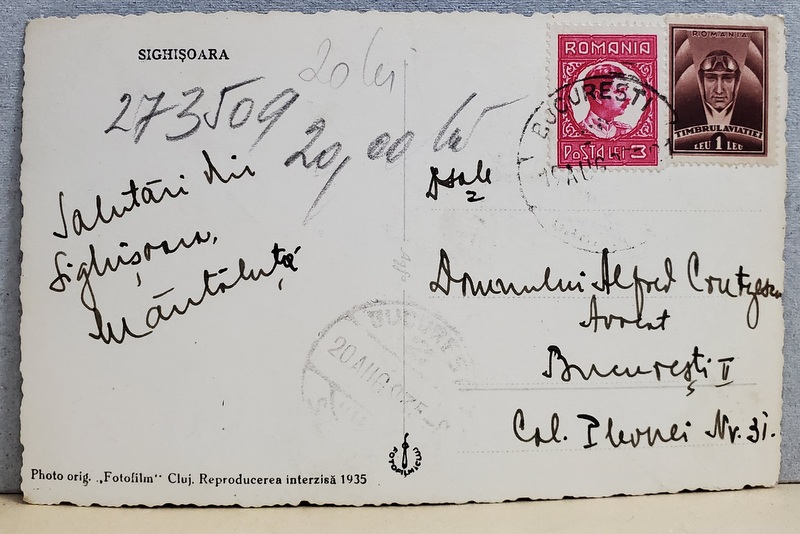 SIGHIȘOARA
20 lei
273509
20,00 lei
Salutări din
Sighișoara,
Mântăluță
ROMANIA
POSTA LEI 3
ROMANIA
TIMBRUL AVIAȚIEI
LEU 1 LEU
BUCUREȘTI
Dsale
Domnului Alfred Coutzescu
Avocat
București II
Cal. Plevnei Nr. 31.
BUCUREȘ
20 AUG 935
FOTOFILM CLUJ
Photo orig. „Fotofilm" Cluj. Reproducerea interzisă 1935